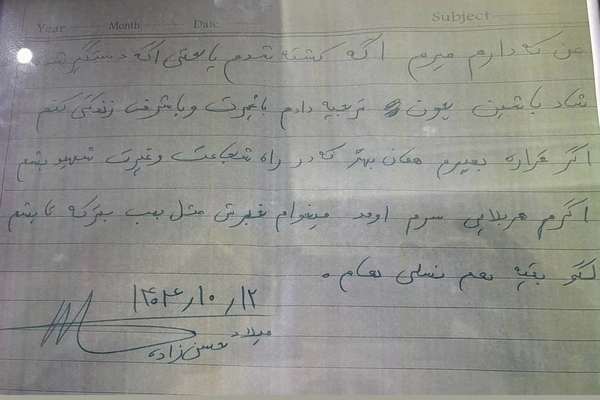 Year Month Date Subject
من که دارم میرم اگه کشته شدم یا حتی اگه دستگیر شدم
شاد باشین چون ترجیه دادم باغیرت و باشرف زندگی کنم
اگر قراره بمیرم همان بهتر که در راه شجاعت و غیرت شهید بشم
اگرم هر بلایی سرم اومد میخوام غیرتی مثل بمب بترکه تا بشم
لگو بقیه هم نسلی هام.
۱۴۰۴/۱۰/۱۲
میلاد
حسن زاده